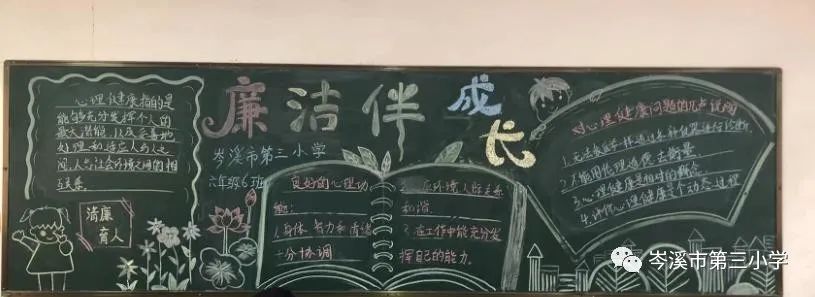 廉洁伴成长
岑溪市第三小学
六年级6班
心理健康指的是
能够充分发挥个人的
最大潜能，以及妥善地
处理和适应人与人之
间，人与社会环境之间的相
互关系。
清廉
育人
良好的心理功
能：
1.身体、智力和情绪
十分协调
2.适应环境人际关系
和谐
3.在工作中能充分发
挥自己的能力。
对心理健康问题的几点说明
1.无法
2.不能用伦理道德去衡量
3.心理健康是相对的概念
4.评价心理健康是个动态过程
岑溪市第三小学